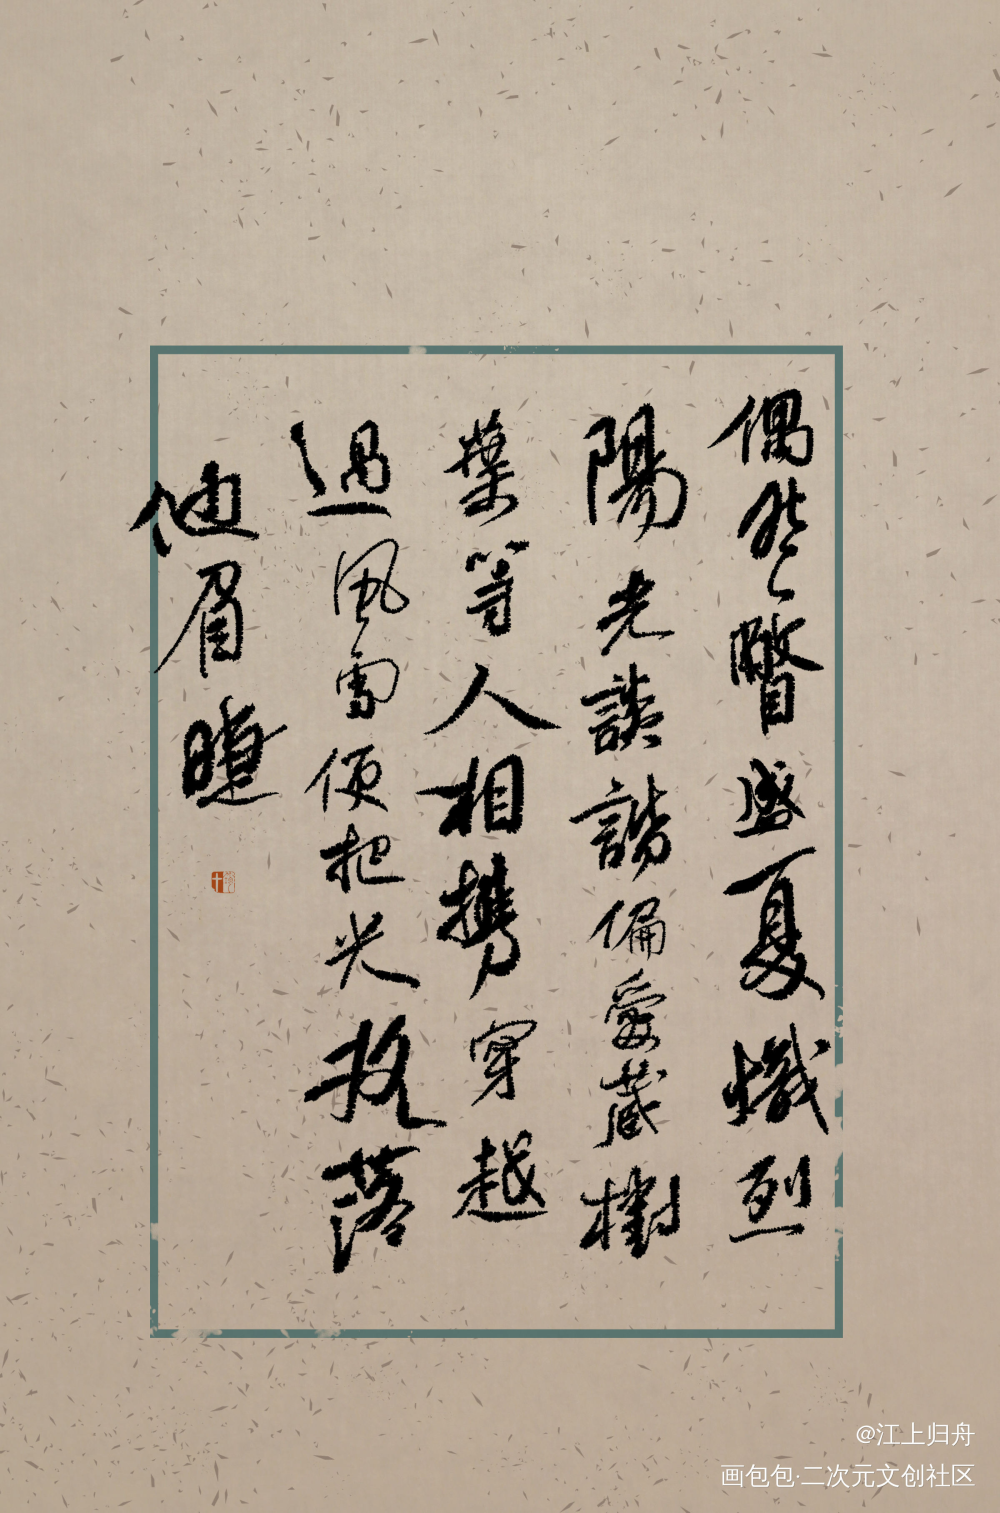 偶然瞥盛夏熾烈
陽光詼諧偏愛藏樹
葉等人相携穿越
過風雪便把光投落
他眉睫
@江上归舟
画包包·二次元文创社区